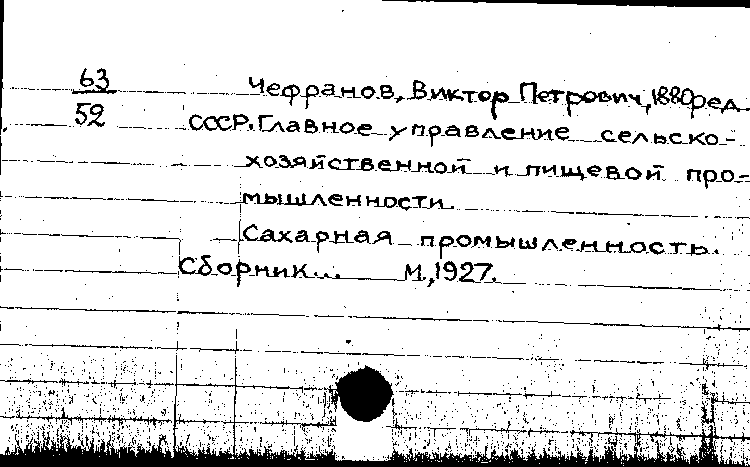 63
52
Чефранов, Виктор Петрович, 1880ред.
СССР. Главное управление сельско-
хозяйственной и пищевой про-
мышленности.
Сахарная промышленность.
Сборник... М., 1927.